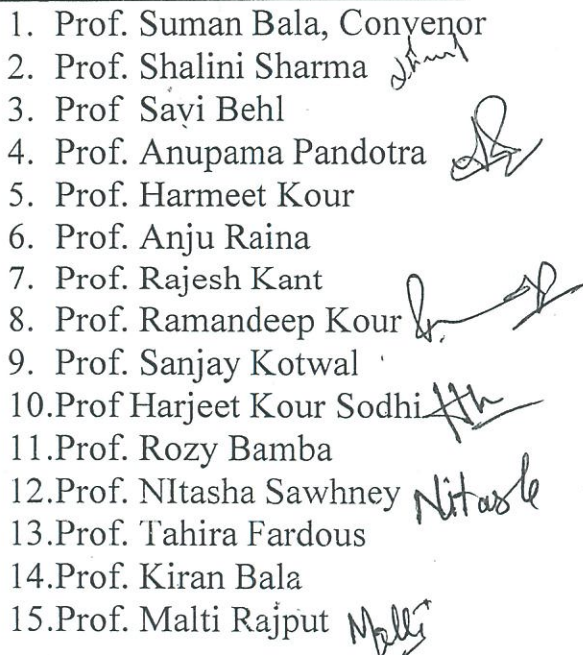 1. Prof. Suman Bala, Convenor
2. Prof. Shalini Sharma
3. Prof Savi Behl
4. Prof. Anupama Pandotra
5. Prof. Harmeet Kour
6. Prof. Anju Raina
7. Prof. Rajesh Kant
8. Prof. Ramandeep Kour
9. Prof. Sanjay Kotwal
10.Prof Harjeet Kour Sodhi
11.Prof. Rozy Bamba
12.Prof. NItasha Sawhney Nitasha
13.Prof. Tahira Fardous
14.Prof. Kiran Bala
15.Prof. Malti Rajput Malti